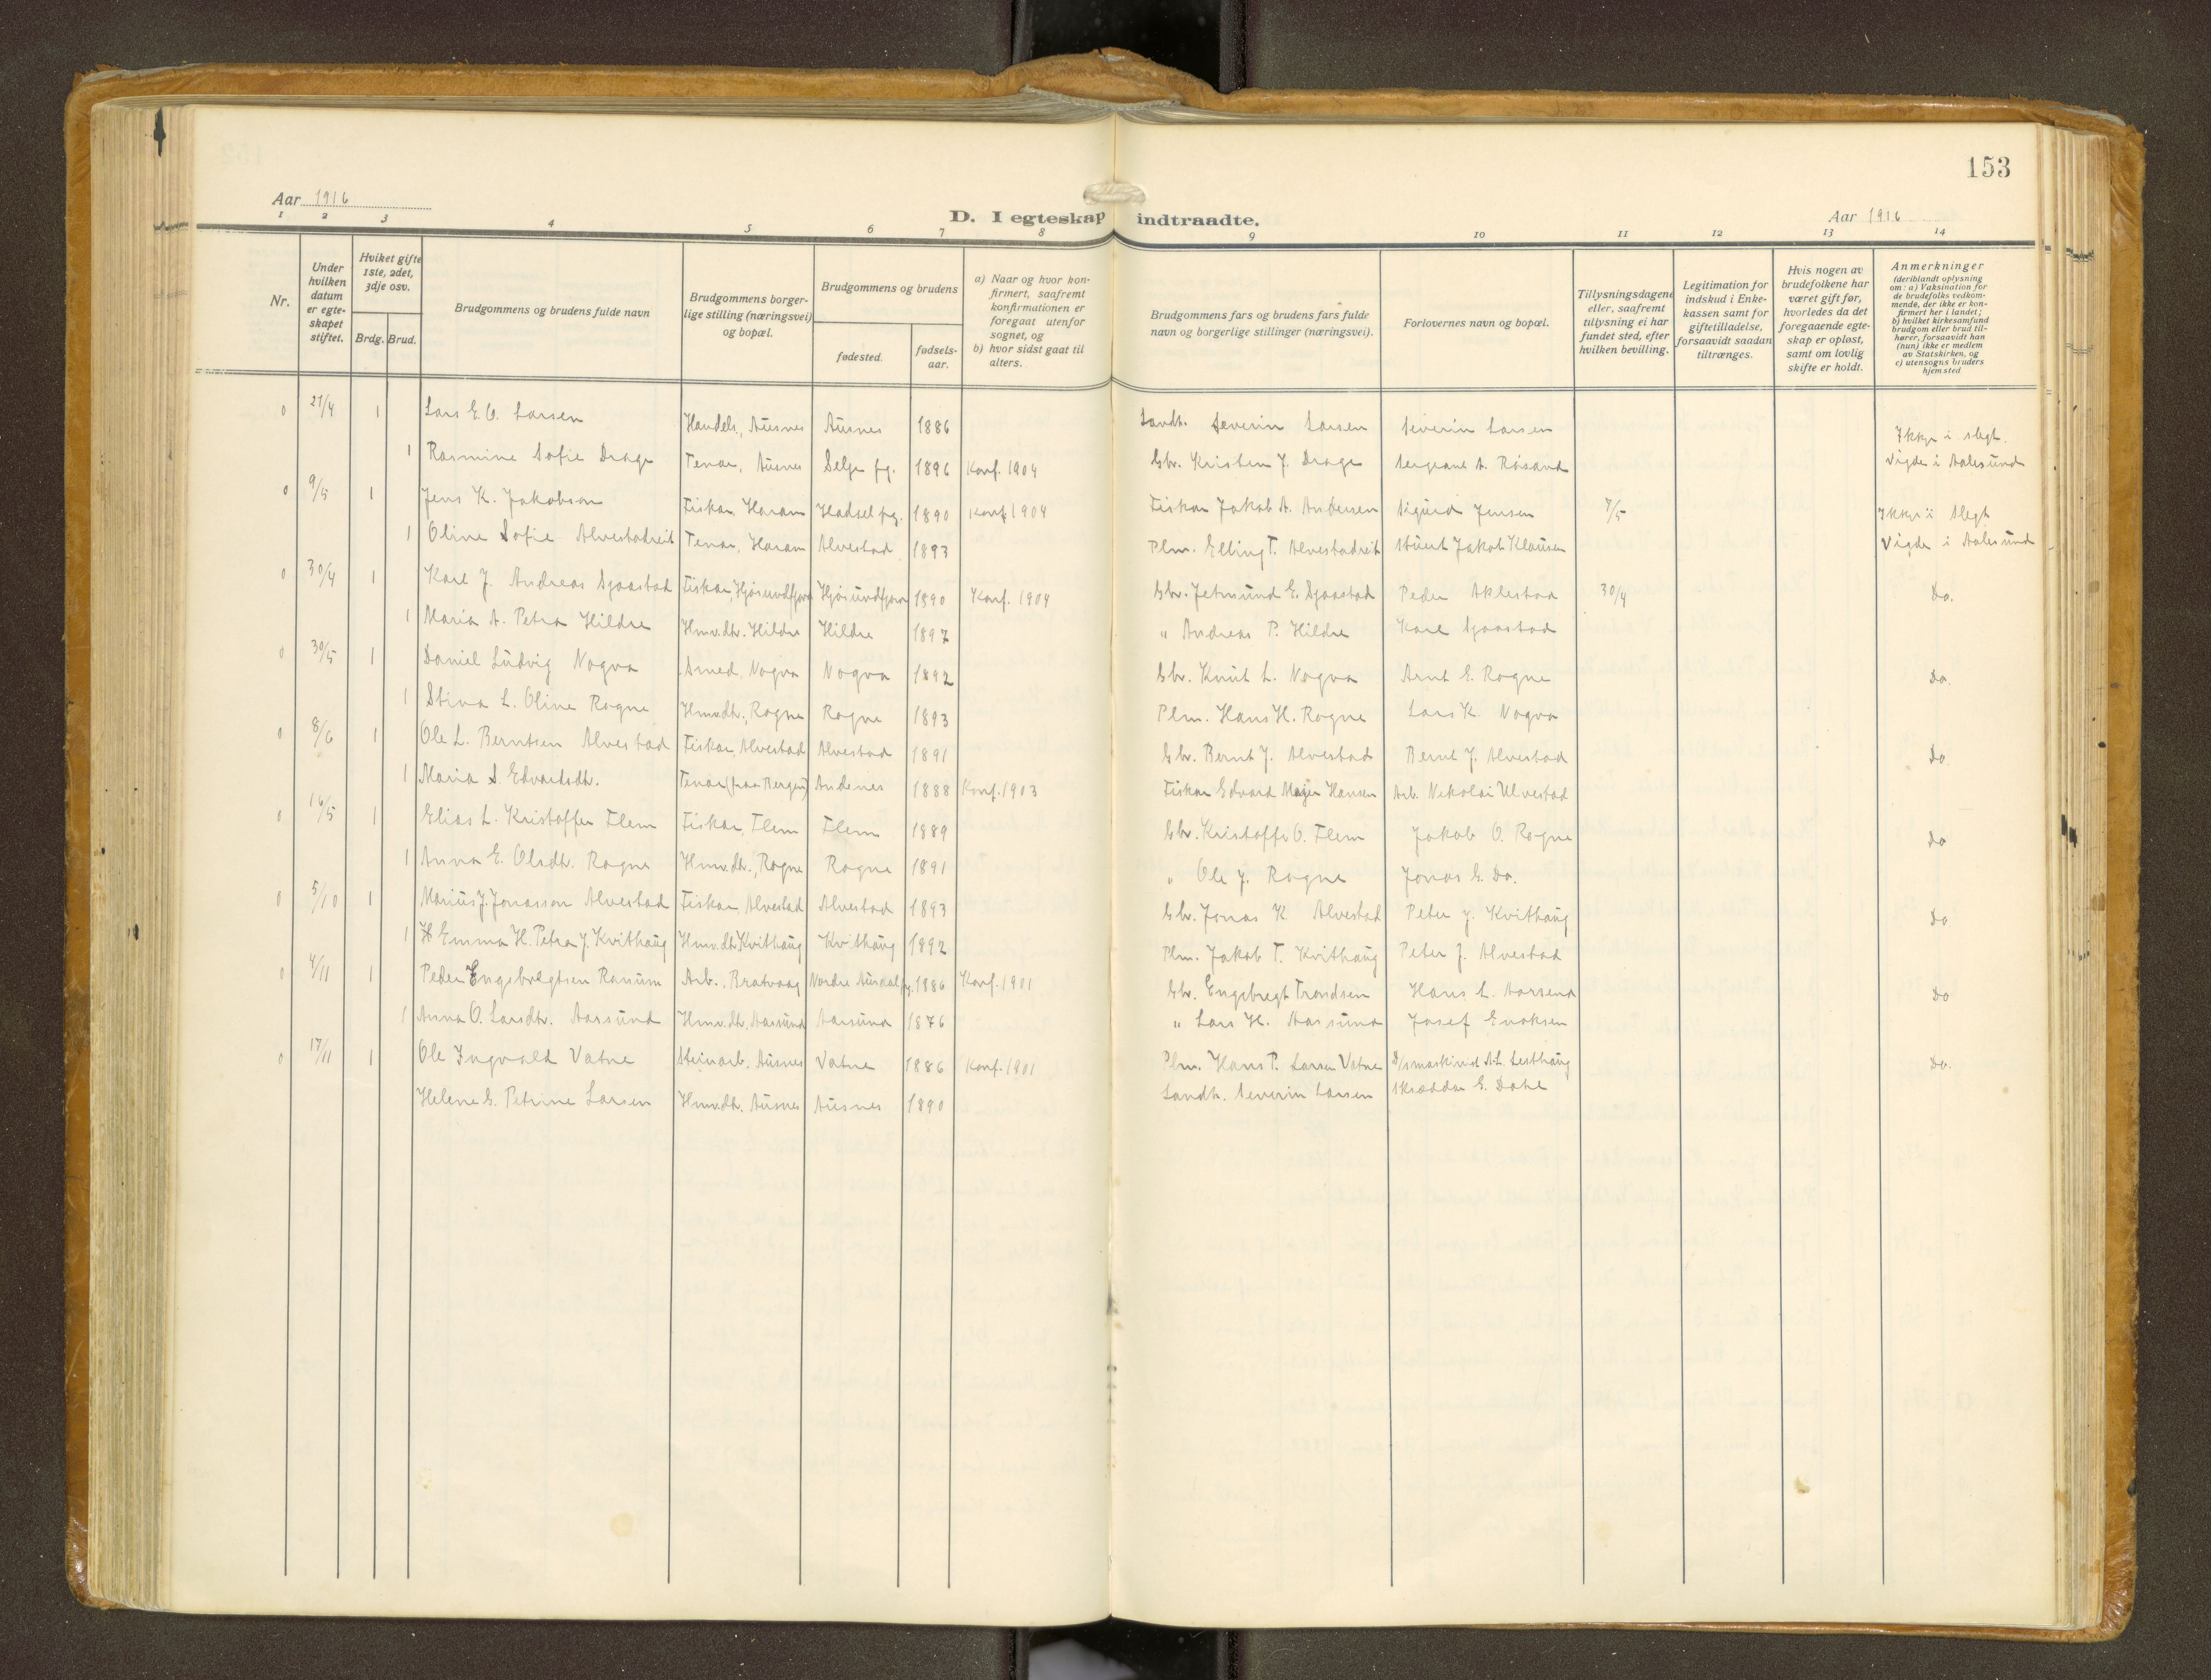 153
Aar 1916
D. I egteskap indtraadte.
Aar 1916
1 2 3 4 5 6 7 8 9 10 11 12 13 14
Nr.
Under hvilken datum er egteskapet stiftet.
Hviket gifte 1ste, 2det, 3dje osv.
Brdg. Brud.
Brudgommens og brudens fulde navn
Brudgommens borgerlige stilling (næringsvei) og bopæl.
Brudgommens og brudens
fødested.
fødselsaar.
a) Naar og hvor konfirmert, saafremt konfirmationen er foregaat utenfor sognet, og
b) hvor sidst gaat til alters.
Brudgommens fars og brudens fars fulde navn og borgerlige stillinger (næringsvei).
Forlovernes navn og bopæl.
Tillysningsdagene eller, saafremt tillysning ei har fundet sted, efter hvilken bevilling.
Legitimation for indskud i Enkekassen samt for giftetilladelse, forsaavidt saadan tiltrænges.
Hvis nogen av brudefolkene har været gift før, hvorledes da det foregaaende egteskap er opløst, samt om lovlig skifte er holdt.
Anmerkninger (deriblandt oplysning om: a) Vaksination for de brudefolks vedkommende, der ikke er konfirmert her i landet; b) hvilket kirkesamfund brudgom eller brud tilhører, forsaavidt han (hun) ikke er medlem av Statskirken, og c) utensogns bruders hjemsted
0 27/4 1 Lars E. O. Larsen Handels., Ausnes Ausnes 1886 Landh. Severin Larsen Severin Larsen Ikkje i slegt.
1 Rasmine Sofie Drage Tenar, Ausnes Selje pg. 1896 Konf. 1904 Gbr. Kristen J. Drage Sergeant A. Røsand Vigde i Aalesund
0 9/5 1 Jens K. Jakobsen Fiskar, Haram Hadsel pg. 1890 Konf 1904 Fiskar Jakob A. Andersen Sigurd Jensen 7/5 Ikkje i slegt
1 Oline Sofie Alvestadreit Tenar, Haram Alvestad 1893 Plm. Elling T. Alvestadreit Stuert Jakob Klausen Vigde i Aalesund
0 30/4 1 Karl J. Andreas Sjaastad Fiskar, Hjørundfjord Hjørundfjord 1890 Konf. 1904 Gbr. Jetmund E. Sjaastad Peder Aklestad 30/4 Do.
1 Maria A. Petra Hildre Hmv.dtr. Hildre Hildre 1897 " Andreas P. Hildre Karl Sjaastad
0 30/5 1 Daniel Ludvig Nogva Smed, Nogva Nogva 1892 Gbr. Knut L. Nogva Arnt E. Rogne Do.
1 Stina L. Oline Rogne Hmv.dtr., Rogne Rogne 1893 Plm. Hans H. Rogne Lars K. Nogva
0 8/6 1 Ole L. Berntsen Alvestad Fiskar, Alvestad Alvestad 1891 Gbr. Bernt J. Alvestad Bernt J. Alvestad Do
1 Maria S. Edvardsdtr. Tenar (fraa Bergen) Andenes 1888 Konf. 1903 Fiskar Edvard Majer Hansen Arb. Nikolai Ulvestad
0 16/5 1 Elias L. Kristoffer Flem Fiskar, Flem Flem 1889 Gbr. Kristoffer O. Flem Jakob O. Rogne Do
1 Anna E. Olsdtr. Rogne Hmv.dtr., Rogne Rogne 1891 " Ole J. Rogne Jonas E. Do.
0 5/10 1 Marius J. Jonasson Alvestad Fiskar, Alvestad Alvestad 1893 Gbr. Jonas K. Alvestad Peter J. Kvithaug Do
1 Emma H. Petra J. Kvithaug Hmv.dtr. Kvithaug Kvithaug 1892 Plm. Jakob T. Kvithaug Peter J. Alvestad
0 4/11 1 Peder Engebregtsen Ranum Arb., Bratvaag Nordre Aurdal pg. 1886 Konf. 1901 Gbr. Engebregt Trondsen Hans L. Aarsund Do
1 Anna O. Larsdtr. Aarsund Hmv.dtr, Aarsund Aarsund 1876 " Lars H. Aarsund Josef Enoksen
0 17/11 1 Ole Ingvald Vatne Steinarb. Ausnes Vatne 1886 Konf. 1901 Plm. Hans P. Larsen Vatne D/smaskinist A. L. Lesthaug Do.
Helene G. Petrine Larsen Hmv.dtr. Ausnes Ausnes 1890 Landh. Severin Larsen Skræddar E. Dahl